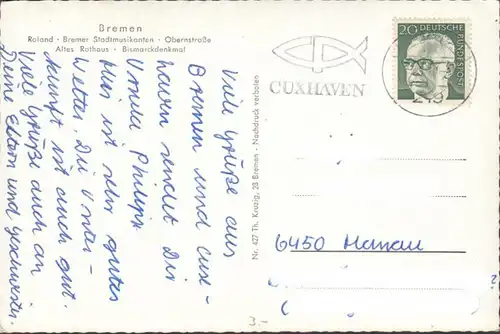 Bremen
Roland · Bremer Stadtmusikanten · Obernstraße
Altes Rathaus · Bismarckdenkmal
Viele Grüße aus
Bremen und Cux-
haven sendet Dir
Ursula Philipp
Hier ist sehr gutes
Wetter. Die Unter-
kunft ist auch gut.
Viele Grüße auch an
Deine Eltern und Geschwister.
Nr. 427 Th. Kruzig, 28 Bremen - Nachdruck verboten
CUXHAVEN
20 DEUTSCHE
BUNDESPOST
6450 Hanau
3.-